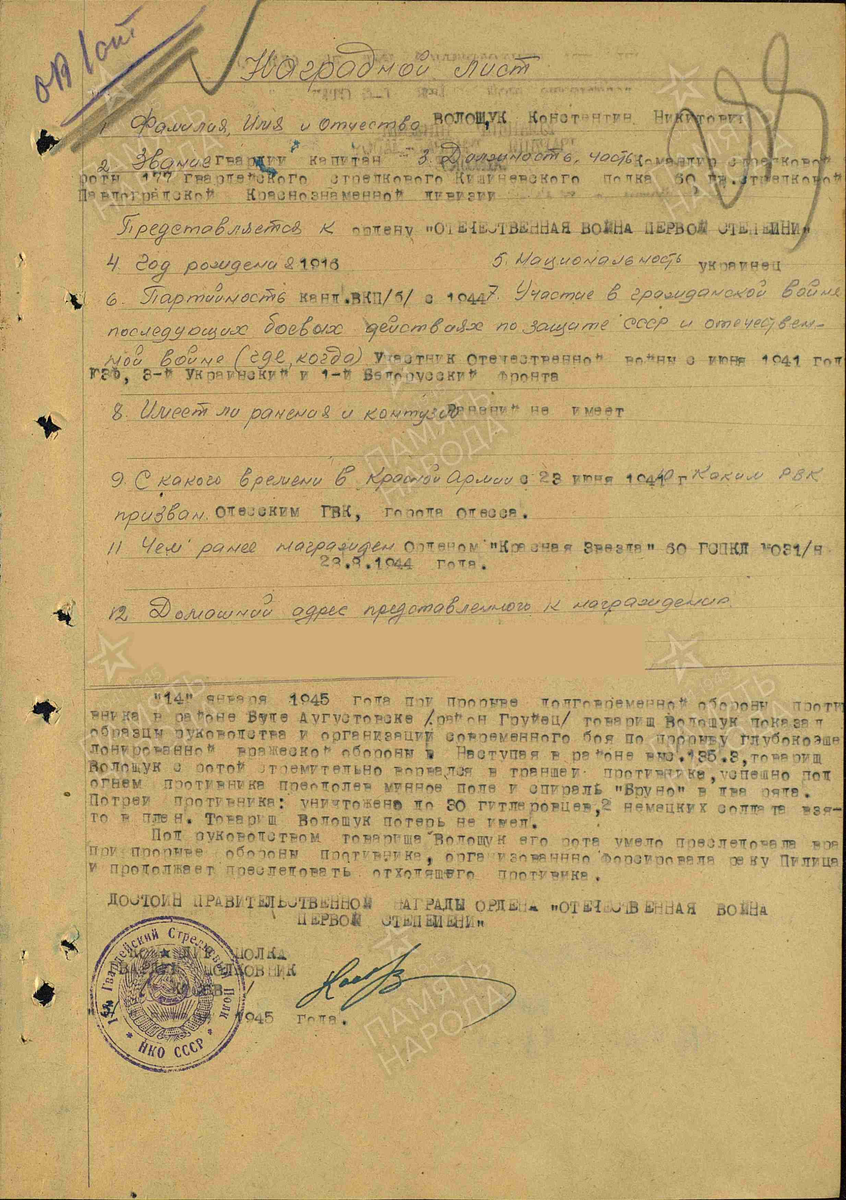 ОВ I ст
Наградной лист
1. Фамилия, Имя и Отчество ВОЛОЩУК Константин Никитович
2. Звание гвардии капитан 3. Должность, часть Командир стрелковой
роты 177 Гвардейского стрелкового Кишиневского полка 60 гв.стрелковой
Павлоградской Краснознаменной дивизии
Представляется к ордену "ОТЕЧЕСТВЕННАЯ ВОЙНА ПЕРВОЙ СТЕПЕННИ"
4. Год рождения 1916 5. Национальность украинец
6. Партийность канд.ВКП/б/ с 1944 7. Участие в гражданской войне
последующих боевых действиях по защите СССР и отечествен-
ной войне (где, когда) участник Отечественной войны с июня 1941 год
3-й Украинский и 1-й Белорусский фронта
8. Имеет ли ранения и контузии Ранений не имеет
9. С какого времени в Красной Армии с 23 июня 1941 г Каким РВК
призван. Одесским ГВК, города Одесса.
11 Чем ранее награжден Орденом "Красная Звезда" 60 ГСПКД №031/н
1944 года.
12. Домашний адрес представленного к награждению
"14" января 1945 года при прорыве долговременной обороны проти
вника в районе Буде Аугустовске /район Груец/ товарищ Волощук показал
образцы руководства и организации современного боя по прорыву глубокоэше
лонированной вражеской обороны. Наступая в районе выс.135.3,товарищ
Волощук с ротой стремительно ворвался в траншеи противника,успешно под
огнем противника преодолев минное поле и спираль "Бруно" в два ряда.
Потери противника: уничтожено до 30 гитлеровцев,2 немецких солдата взя-
то в плен. Товарищ Волощук потерь не имел.
Под руководством товарища Волощук его рота умело преследовала вра
при прорыве обороны противника, организованно форсировала реку Пилица
и продолжает преследовать отходящего противника.
ДОСТОИН ПРАВИТЕЛЬСТВЕННОЙ НАГРАДЫ ОРДЕНА "ОТЕЧЕСТВЕННАЯ ВОЙНА
ПЕРВОЙ СТЕПЕНЕНИ"
ПОЛКА
ПОЛКОВНИК
1945 года.
Гвардейский Стрелковый Полк
НКО СССР
ПАМЯТЬ НАРОДА